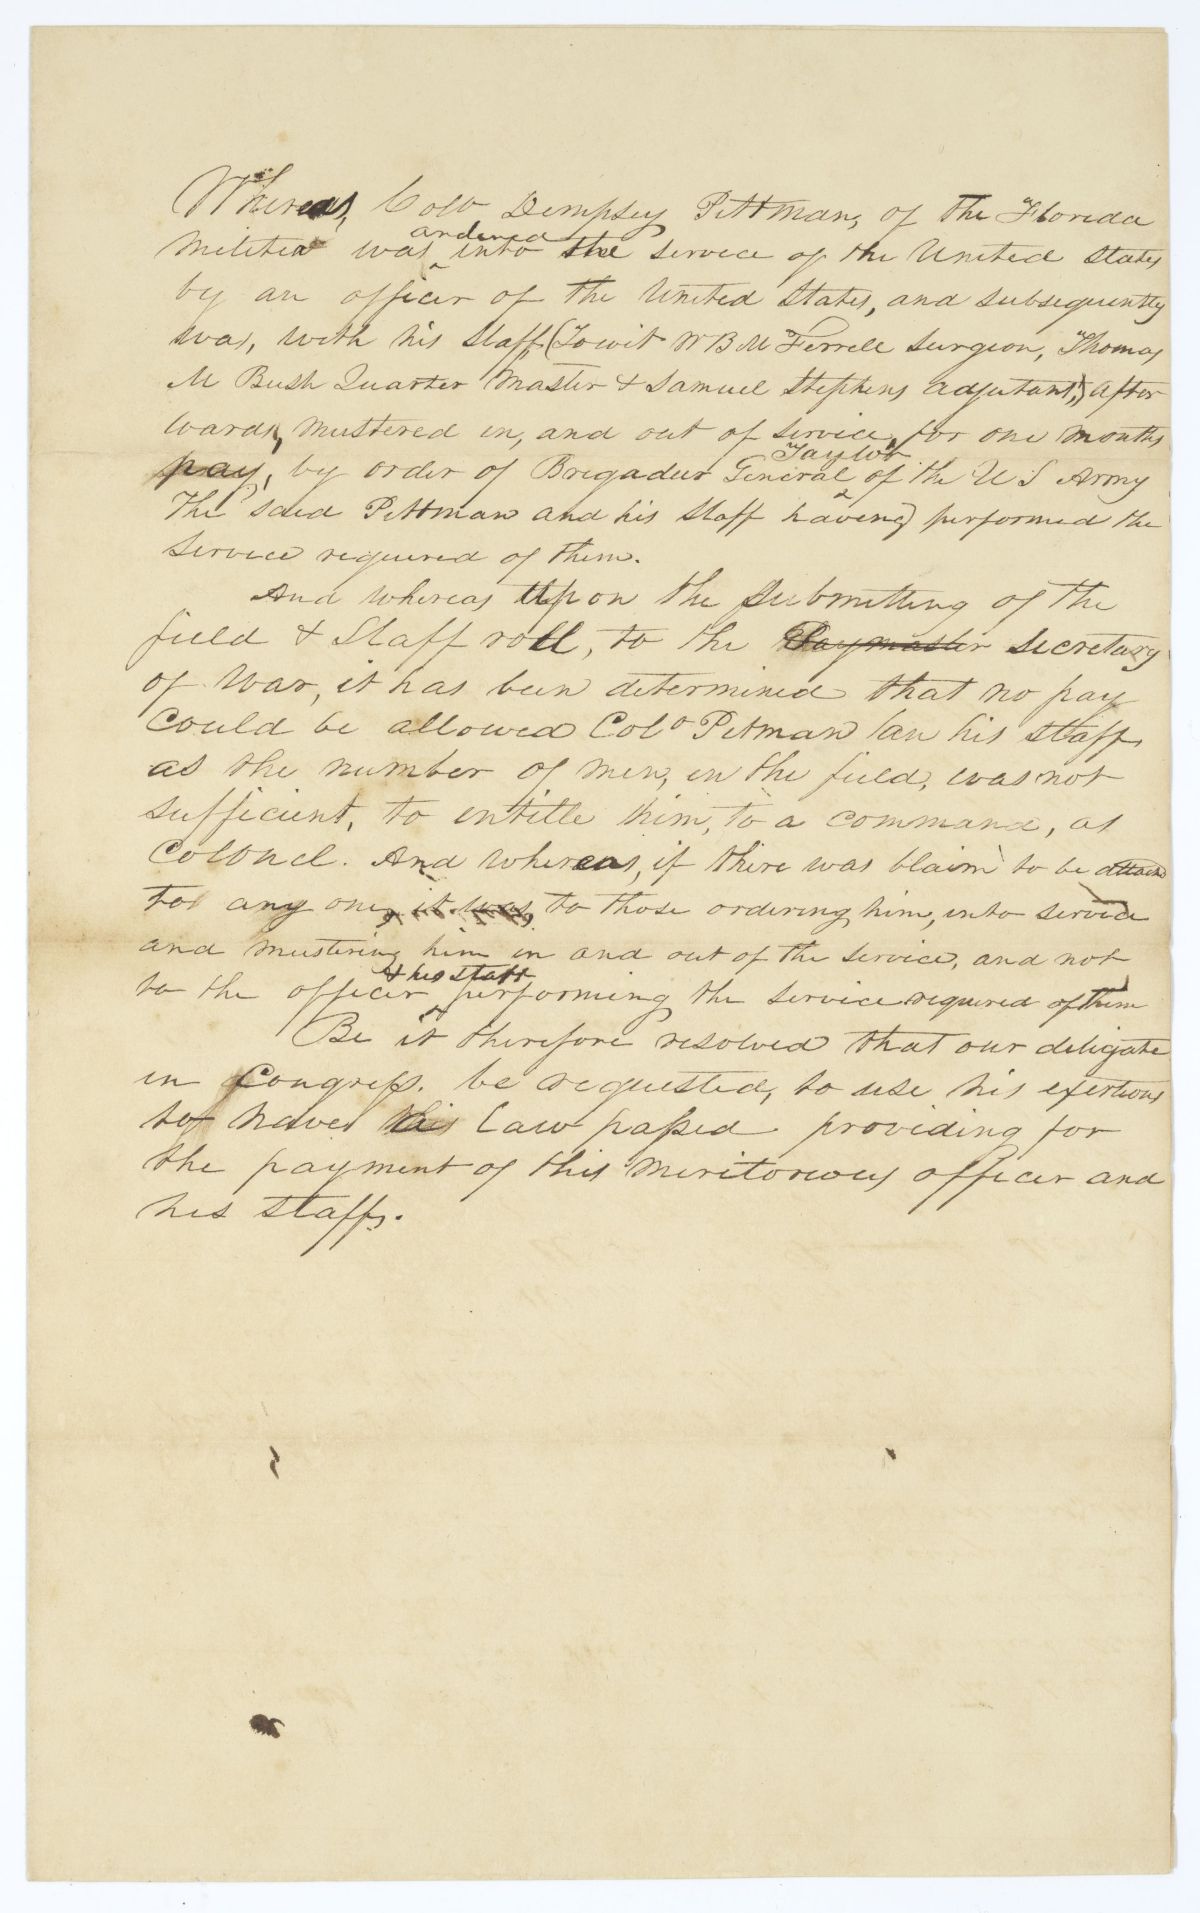 Whereas, Colo Dempsey Pittman, of the Florida
ordered
Militia was into the service of the United States
by an officer of the United States, and subsequently
was, with his Staff, (Towit W B M Ferrell Surgeon, Thomas
M Bush Quarter Master & Samuel Stephens adjutant,) after
wards, mustered in, and out of service, for one months
Taylor
pay, by order of Brigadier General of the U S Army
The said Pittman and his Staff having performed the
Service required of them.
And whereas Upon the submitting of the
field & Staff roll, to the Paymaster Secretary
of War, it has been determined that no pay
could be allowed Colo Pitman his staff,
as the number of men, in the field, was not
sufficient, to entitle him, to a command, as
Colonel. And whereas, if there was blaim to be attach
to any one, it was, to those ordering him, into service
and mustering him in and out of the service, and not
& his staff
to the officer performing the service required of them
Be it therefore resolved that our deligate
in Congress. be requested, to use his exertions
to have a Law passed providing for
the payment of this meritorious officer and
his staff.